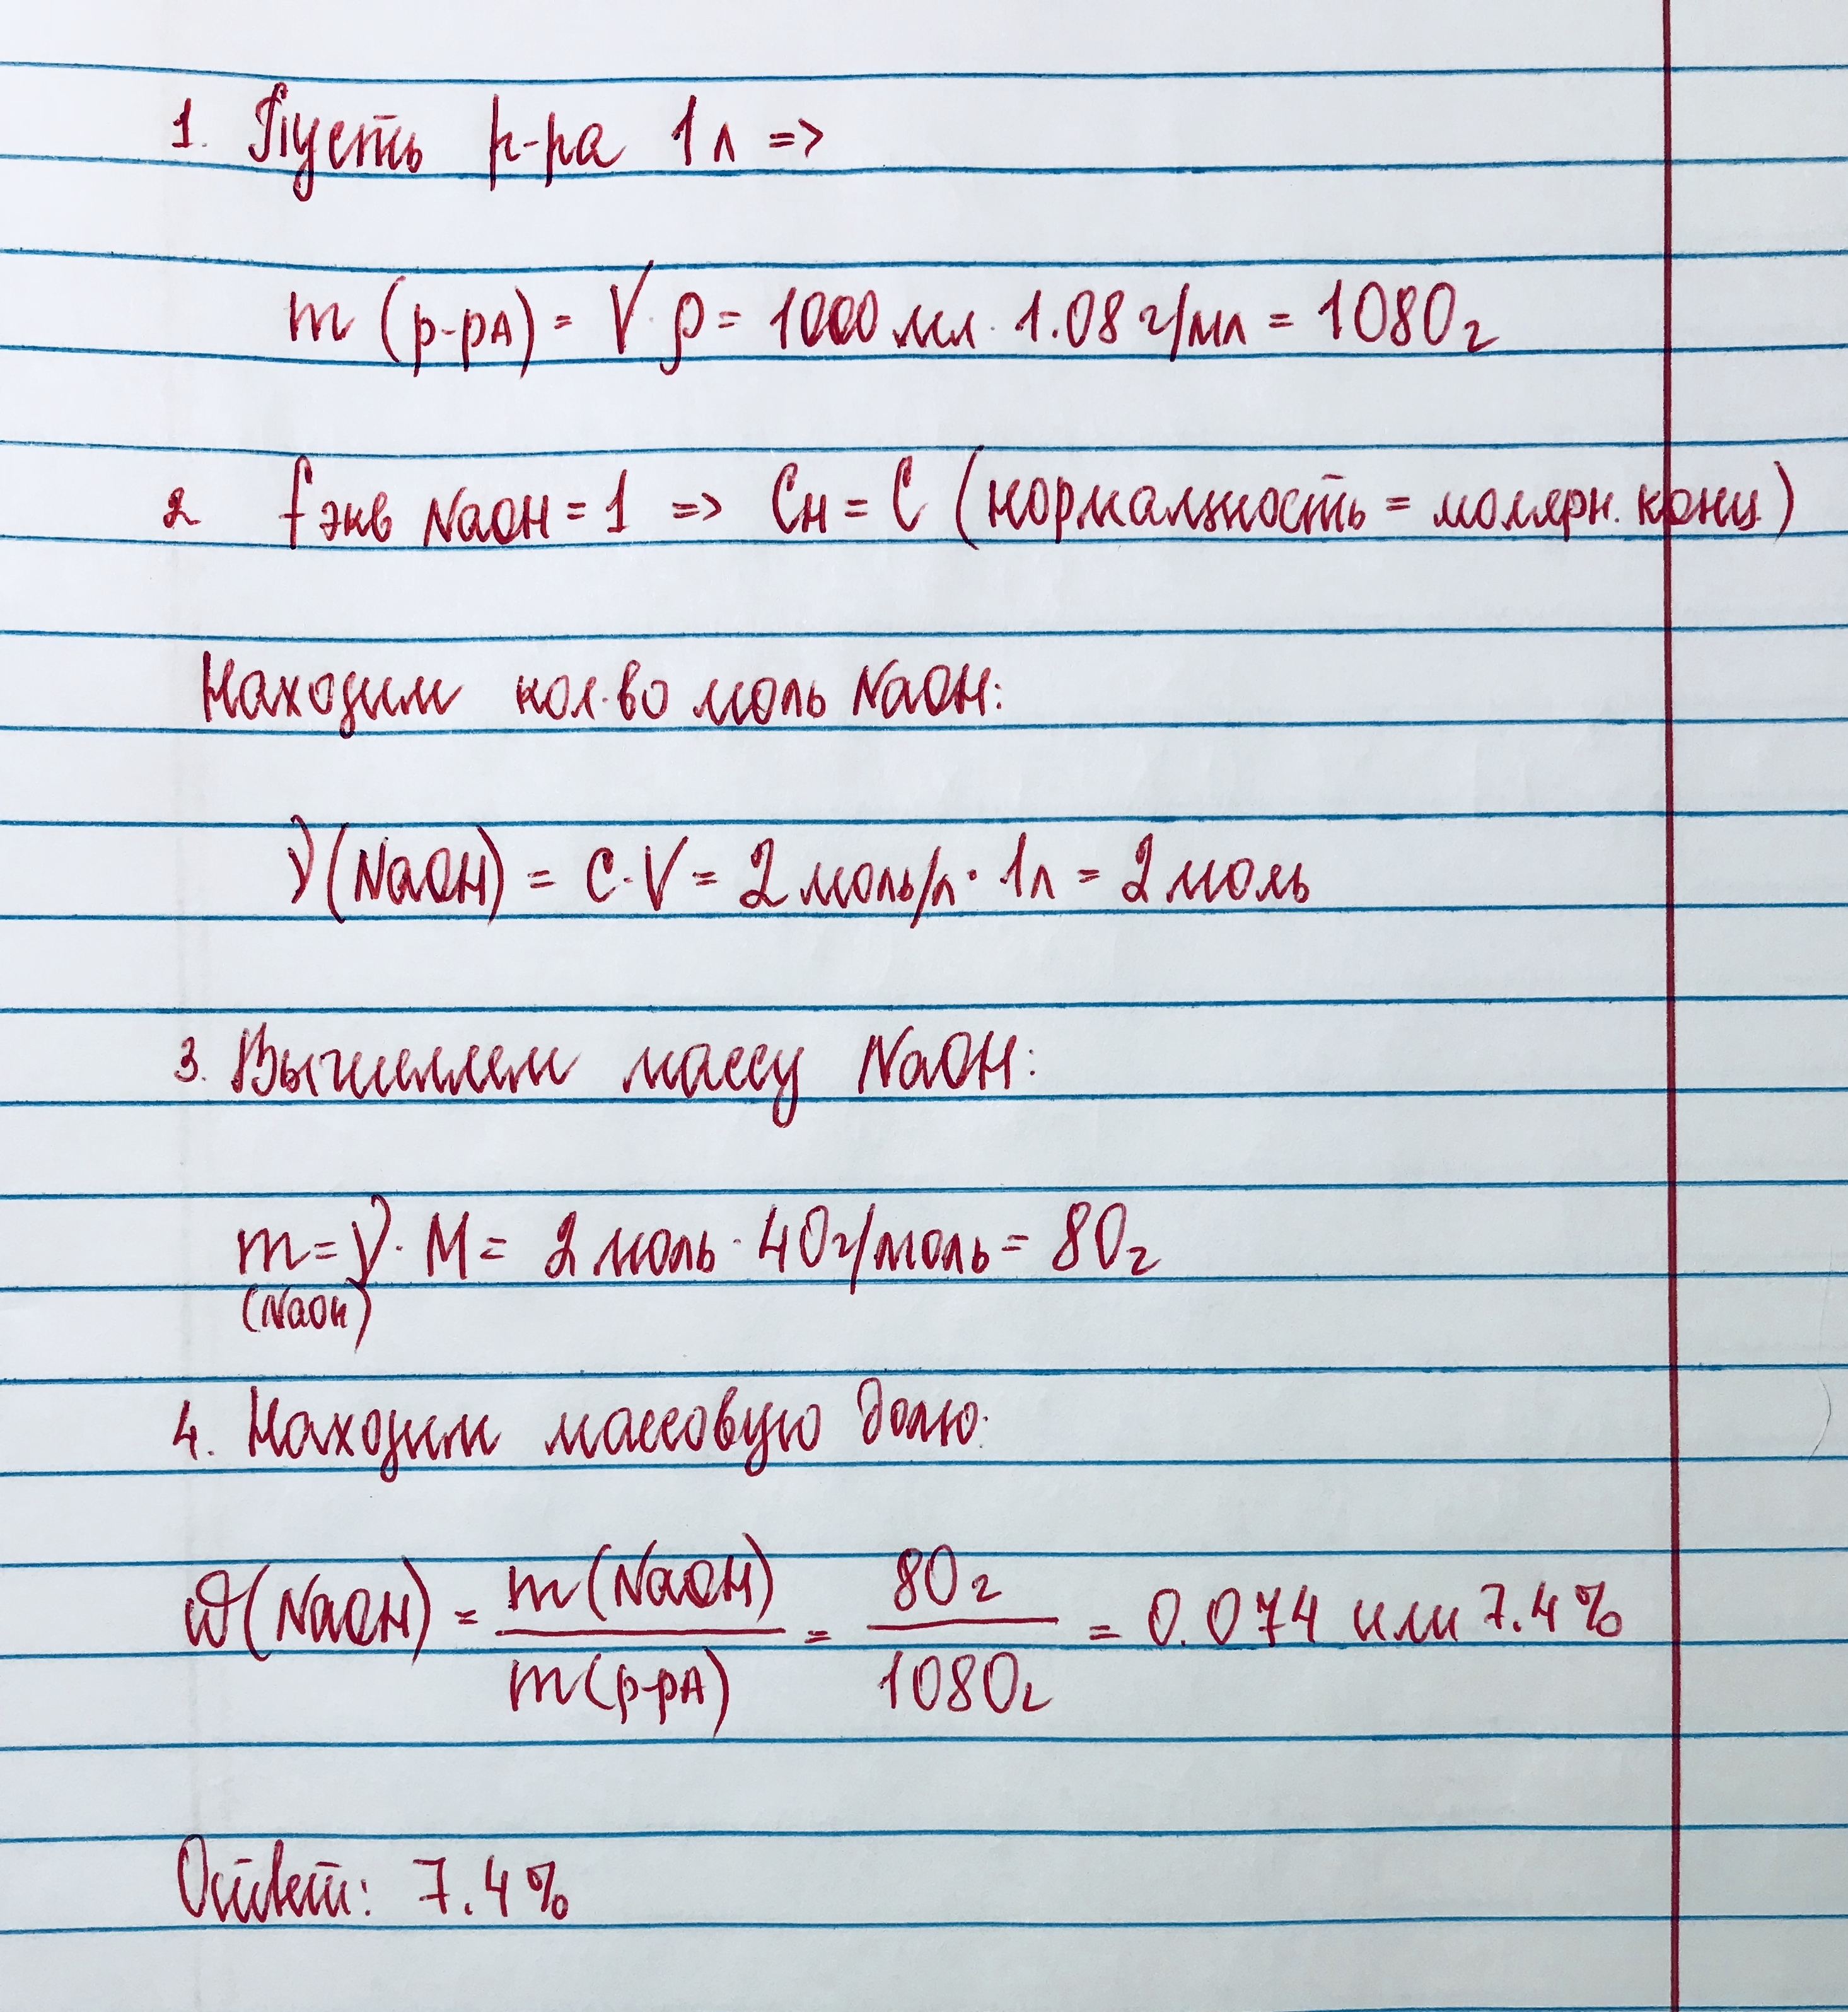 1. Пусть р-ра 1л =>
m (р-рА) = V · ρ = 1000 мл · 1.08 г/мл = 1080 г
2 f экв NaOH = 1 => Сн = С (нормалцность = молярн. конц.)
Находим кол-во моль NaOH:
ν(NaOH) = C · V = 2 моль/л · 1л = 2 моль
3. Вычисляем массу NaOH:
m = ν · M = 2 моль · 40 г/моль = 80 г
(NaOH)
4. Находим массовую долю:
m (NaOH) 80 г
ω(NaOH) = = = 0.074 или 7.4%
m (р-рА) 1080 г
Ответ: 7.4%